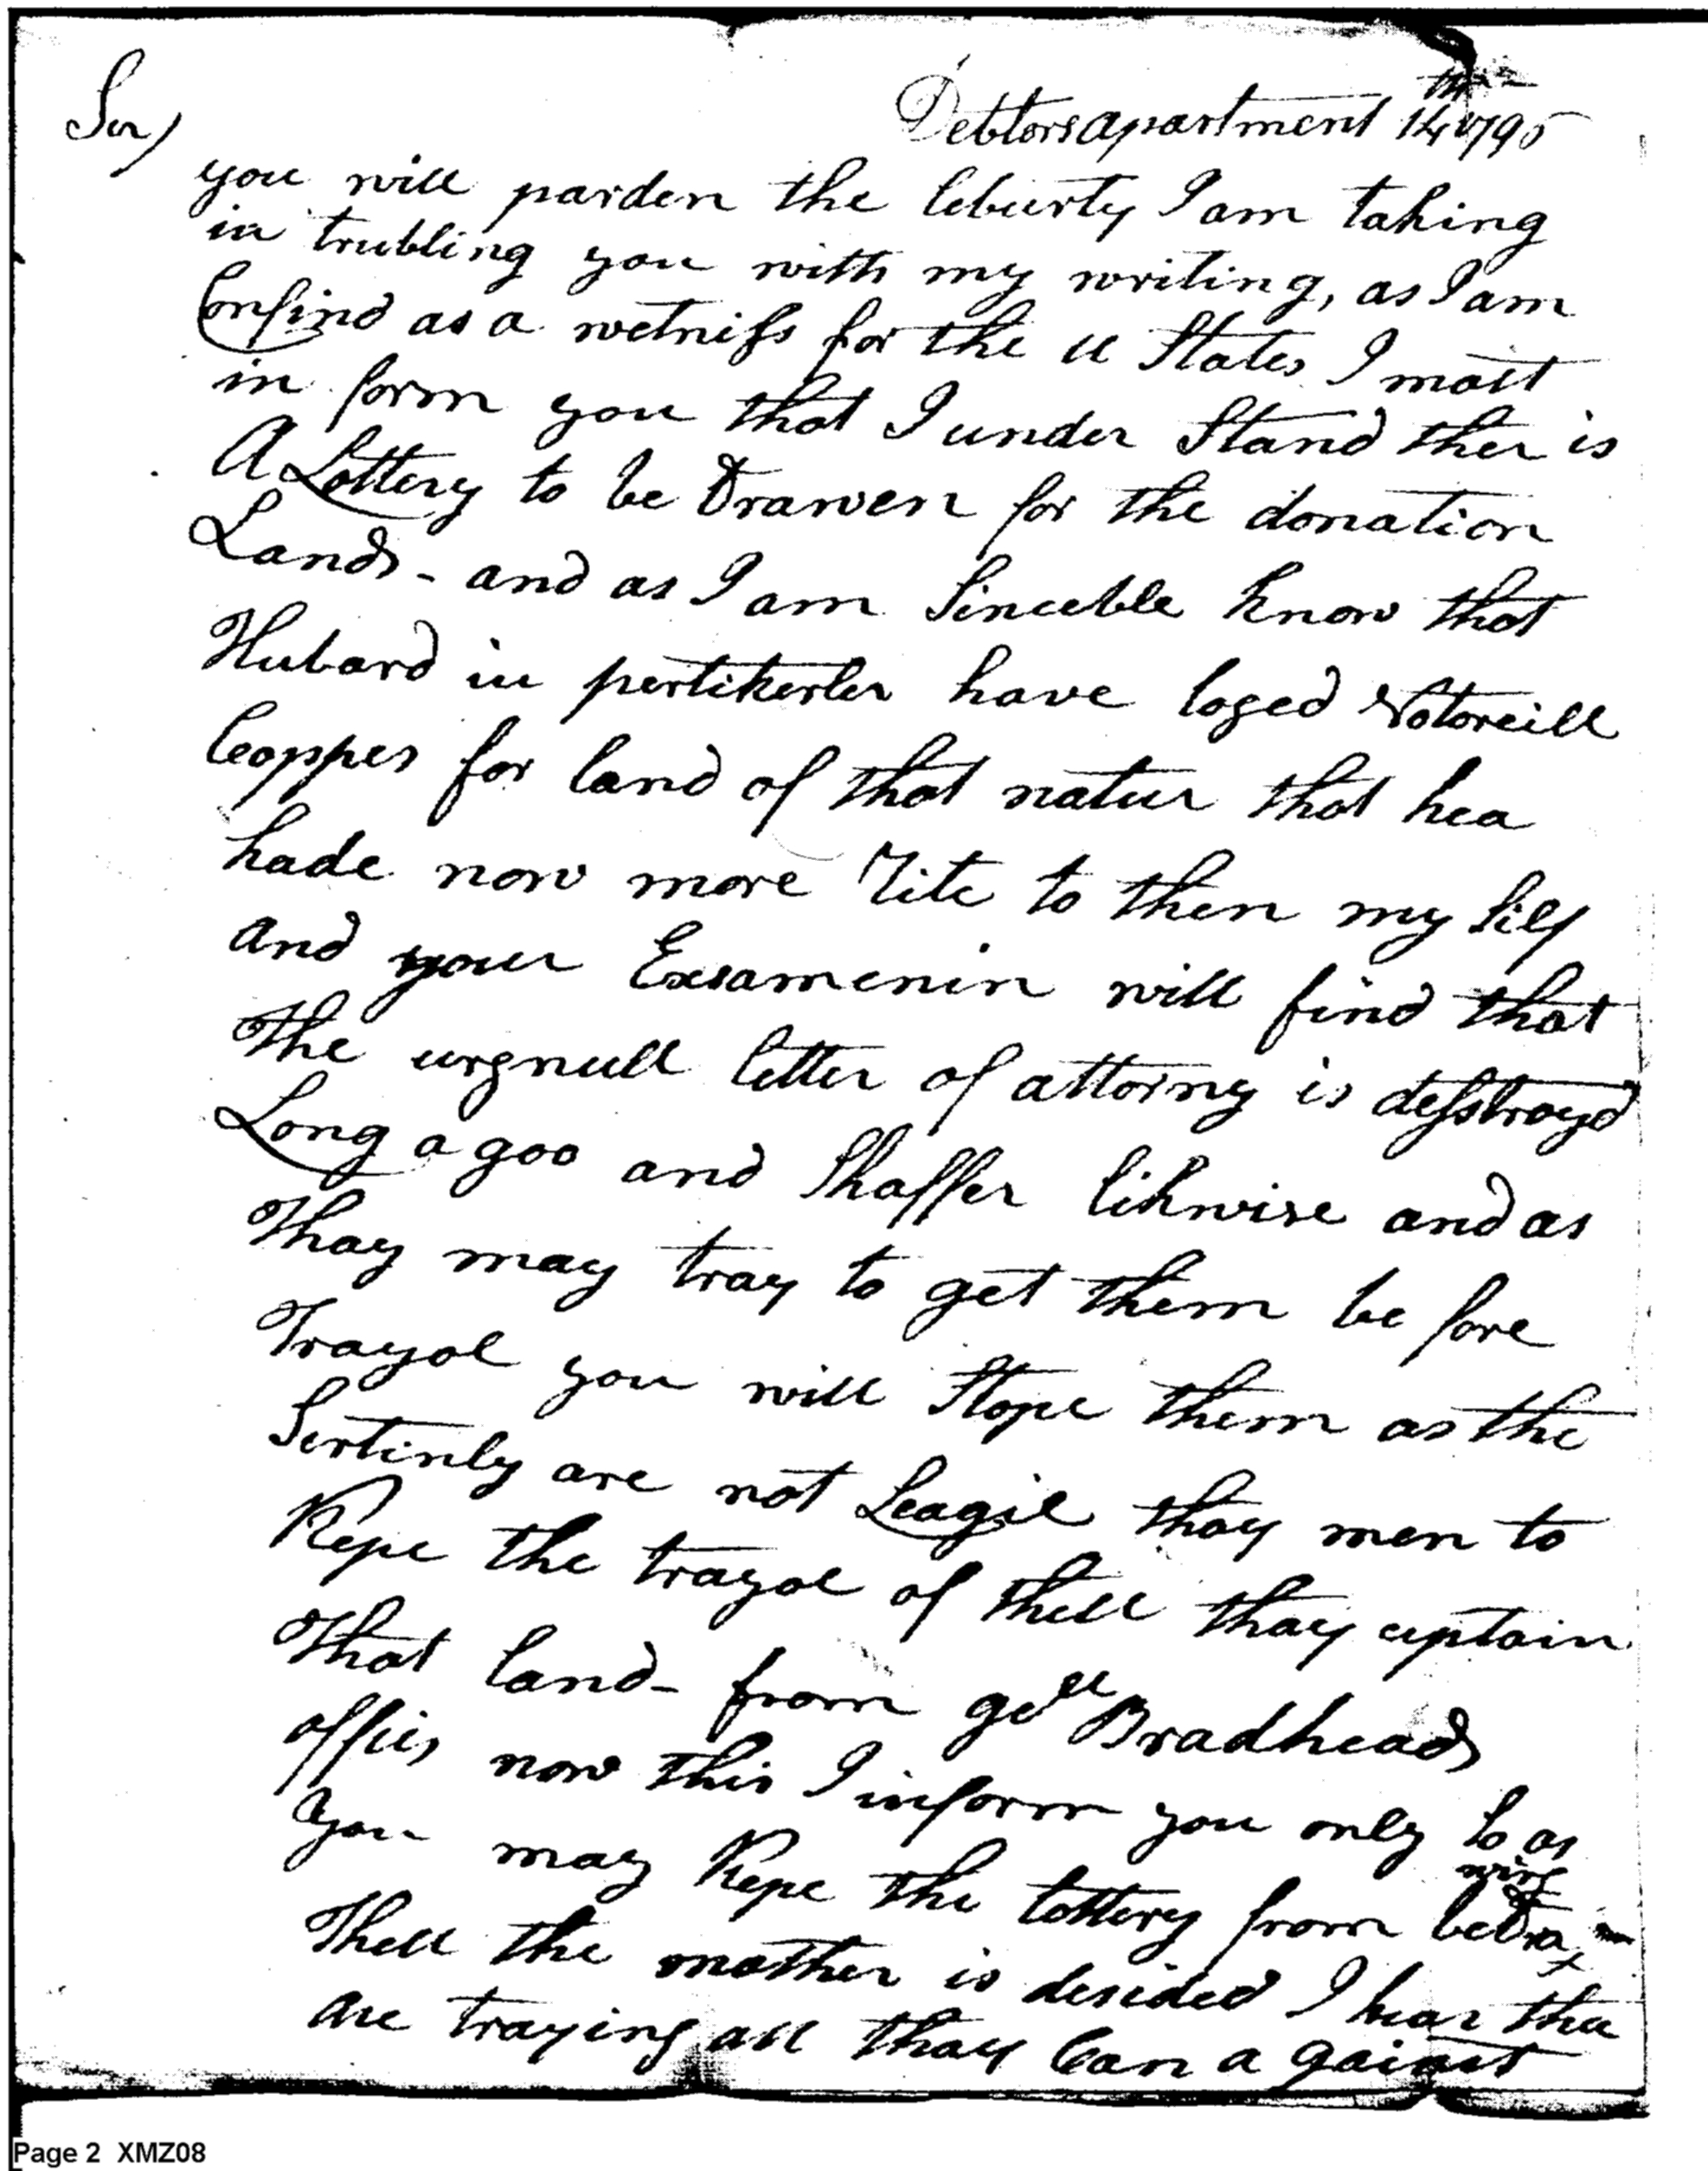 Debtors apartment 14th 1795
Ser)
you will parden the leburty I am taking
in trubling you with my writing, as I am
Confind as a wetness for the U States I most
in form you that I under Stand ther is
A Lottery to be Drawen for the donation
Lands - and as I am Sinceble know that
Hubard in pertikerler have loged Notoreill
Coppes for land of that natur that hea
hade now more Rite to then my self
and your Exsamenin will find that
The urgnull letter of attorny is desstroyd
Long a goo and Shaffer likwise and as
Thay may tray to get them be fore
Trayol you will Stope them as the
Sertinly are not Leagil thay men to
Kepe the trayol of thell thay uptain
That land - from gell Bradheads
offies now this I inform you only so as
you may Kepe the lottery from be Drawing
Thell the mather is desided I hear the
are traying all thay Can a gainst
Page 2 XMZ08